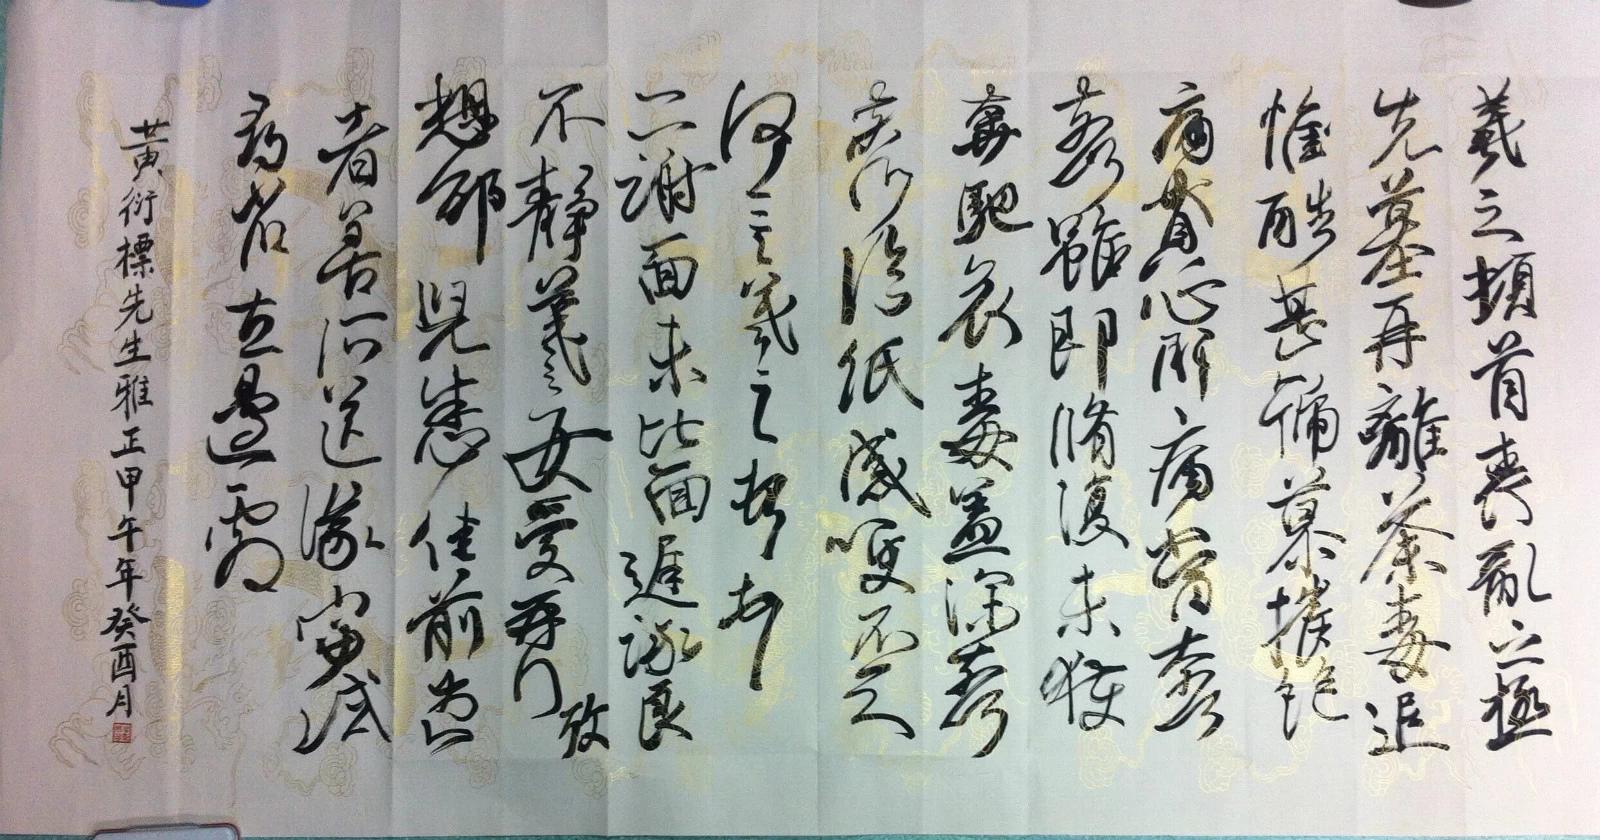 羲之頓首喪亂之極
先墓再離荼毒追
惟酷甚號慕摧絕
痛貫心肝痛當奈何
奈何雖即脩復未獲
奔馳哀毒益深奈何
奈何臨紙感哽不知
何言羲之頓首
二謝面未比面遲詠良
不靜羲之女愛再拜
想邵兒悉佳前患
者善所送議當試
尋省左邊劇
黃衍標先生雅正甲午年癸酉月